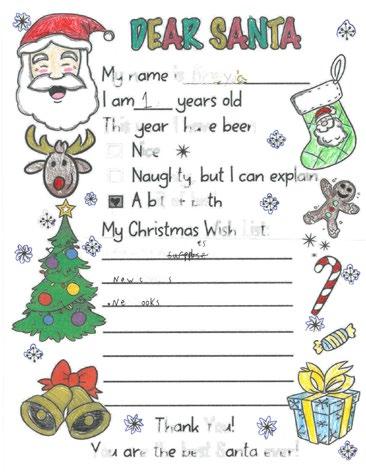 DEAR SANTA
My name is
I am 1 years old
This year I have been
Nice
Naughty, but I can explain
A bit of both
My Christmas Wish List:
surprises
New
New books
Thank You!
You are the best Santa ever!